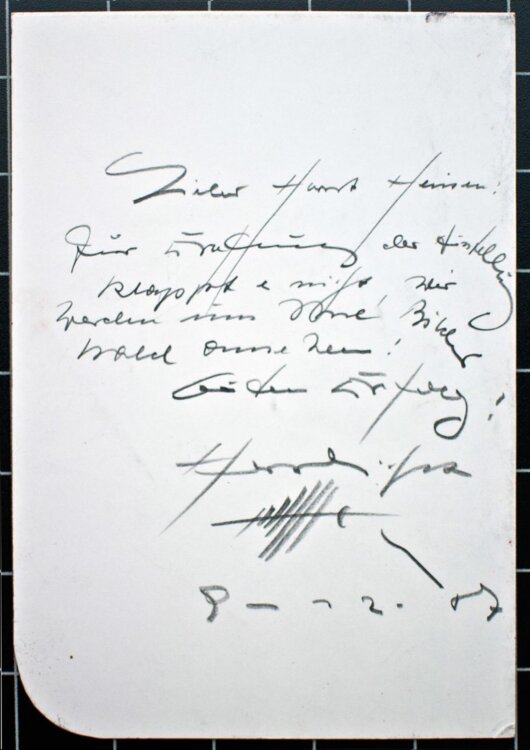 Lieber Horst Heinen!
Zur Eröffnung der Ausstellung
klappt es nicht, wir
werden uns Ihre Bilder
bald ansehen!
Guten Erfolg!
Herzlichst
87